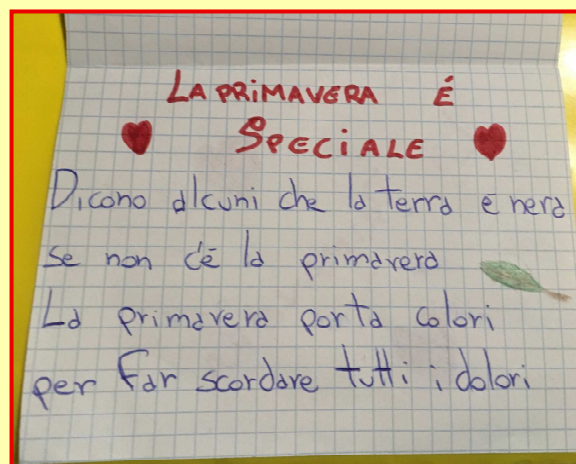 LA PRIMAVERA É
SPECIALE
Dicono alcuni che la terra e nera
se non c'è la primavera
La primavera porta colori
per far scordare tutti i dolori